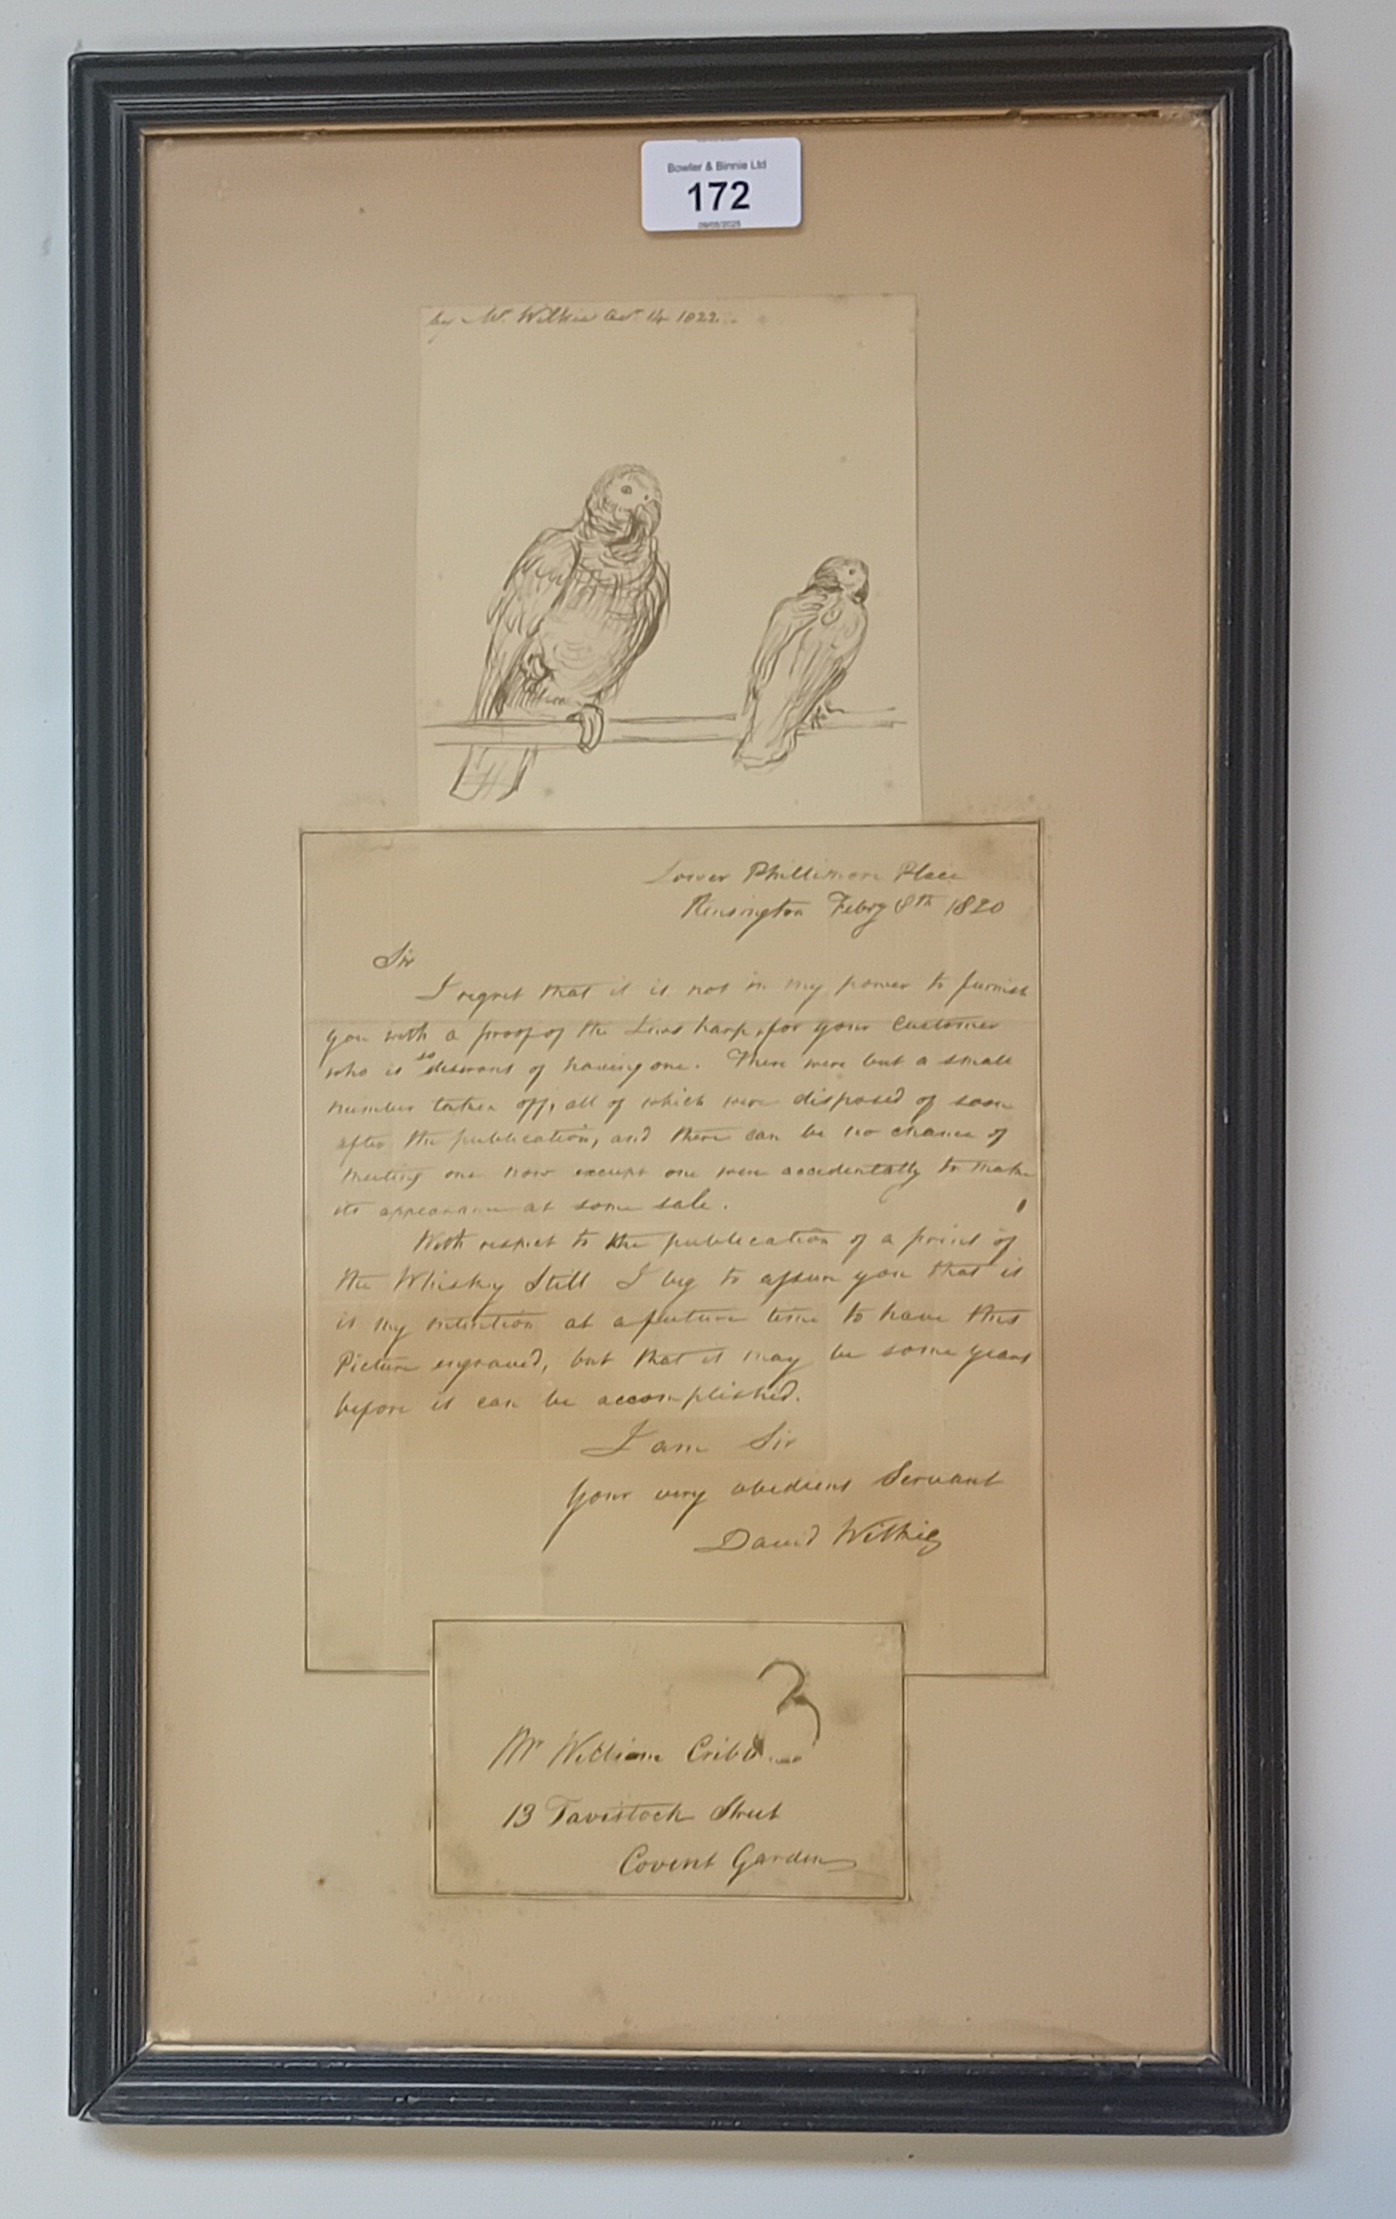 Bowler & Binnie Ltd
172
09/05/2025
by Mr. Wilkie 14 1822
Lower Phillimore Place
Kensington Febry 8th 1820
Sir
I regret that it is not in my power to furnish
you with a proof of the Jews harp, for your Customer
who is so desirous of having one. There were but a small
number taken off, all of which were disposed of soon
after the publication, and there can be no chance of
meeting one now except one were accidentally to make
its appearance at some sale.
With respect to the publication of a print of
the Whisky Still I beg to assure you that it
is my intention at a future time to have this
Picture engraved, but that it may be some years
before it can be accomplished.
I am Sir
Your very obedient Servant
David Wilkie
3
Mr William Cribb
13 Tavistock Street
Covent Garden